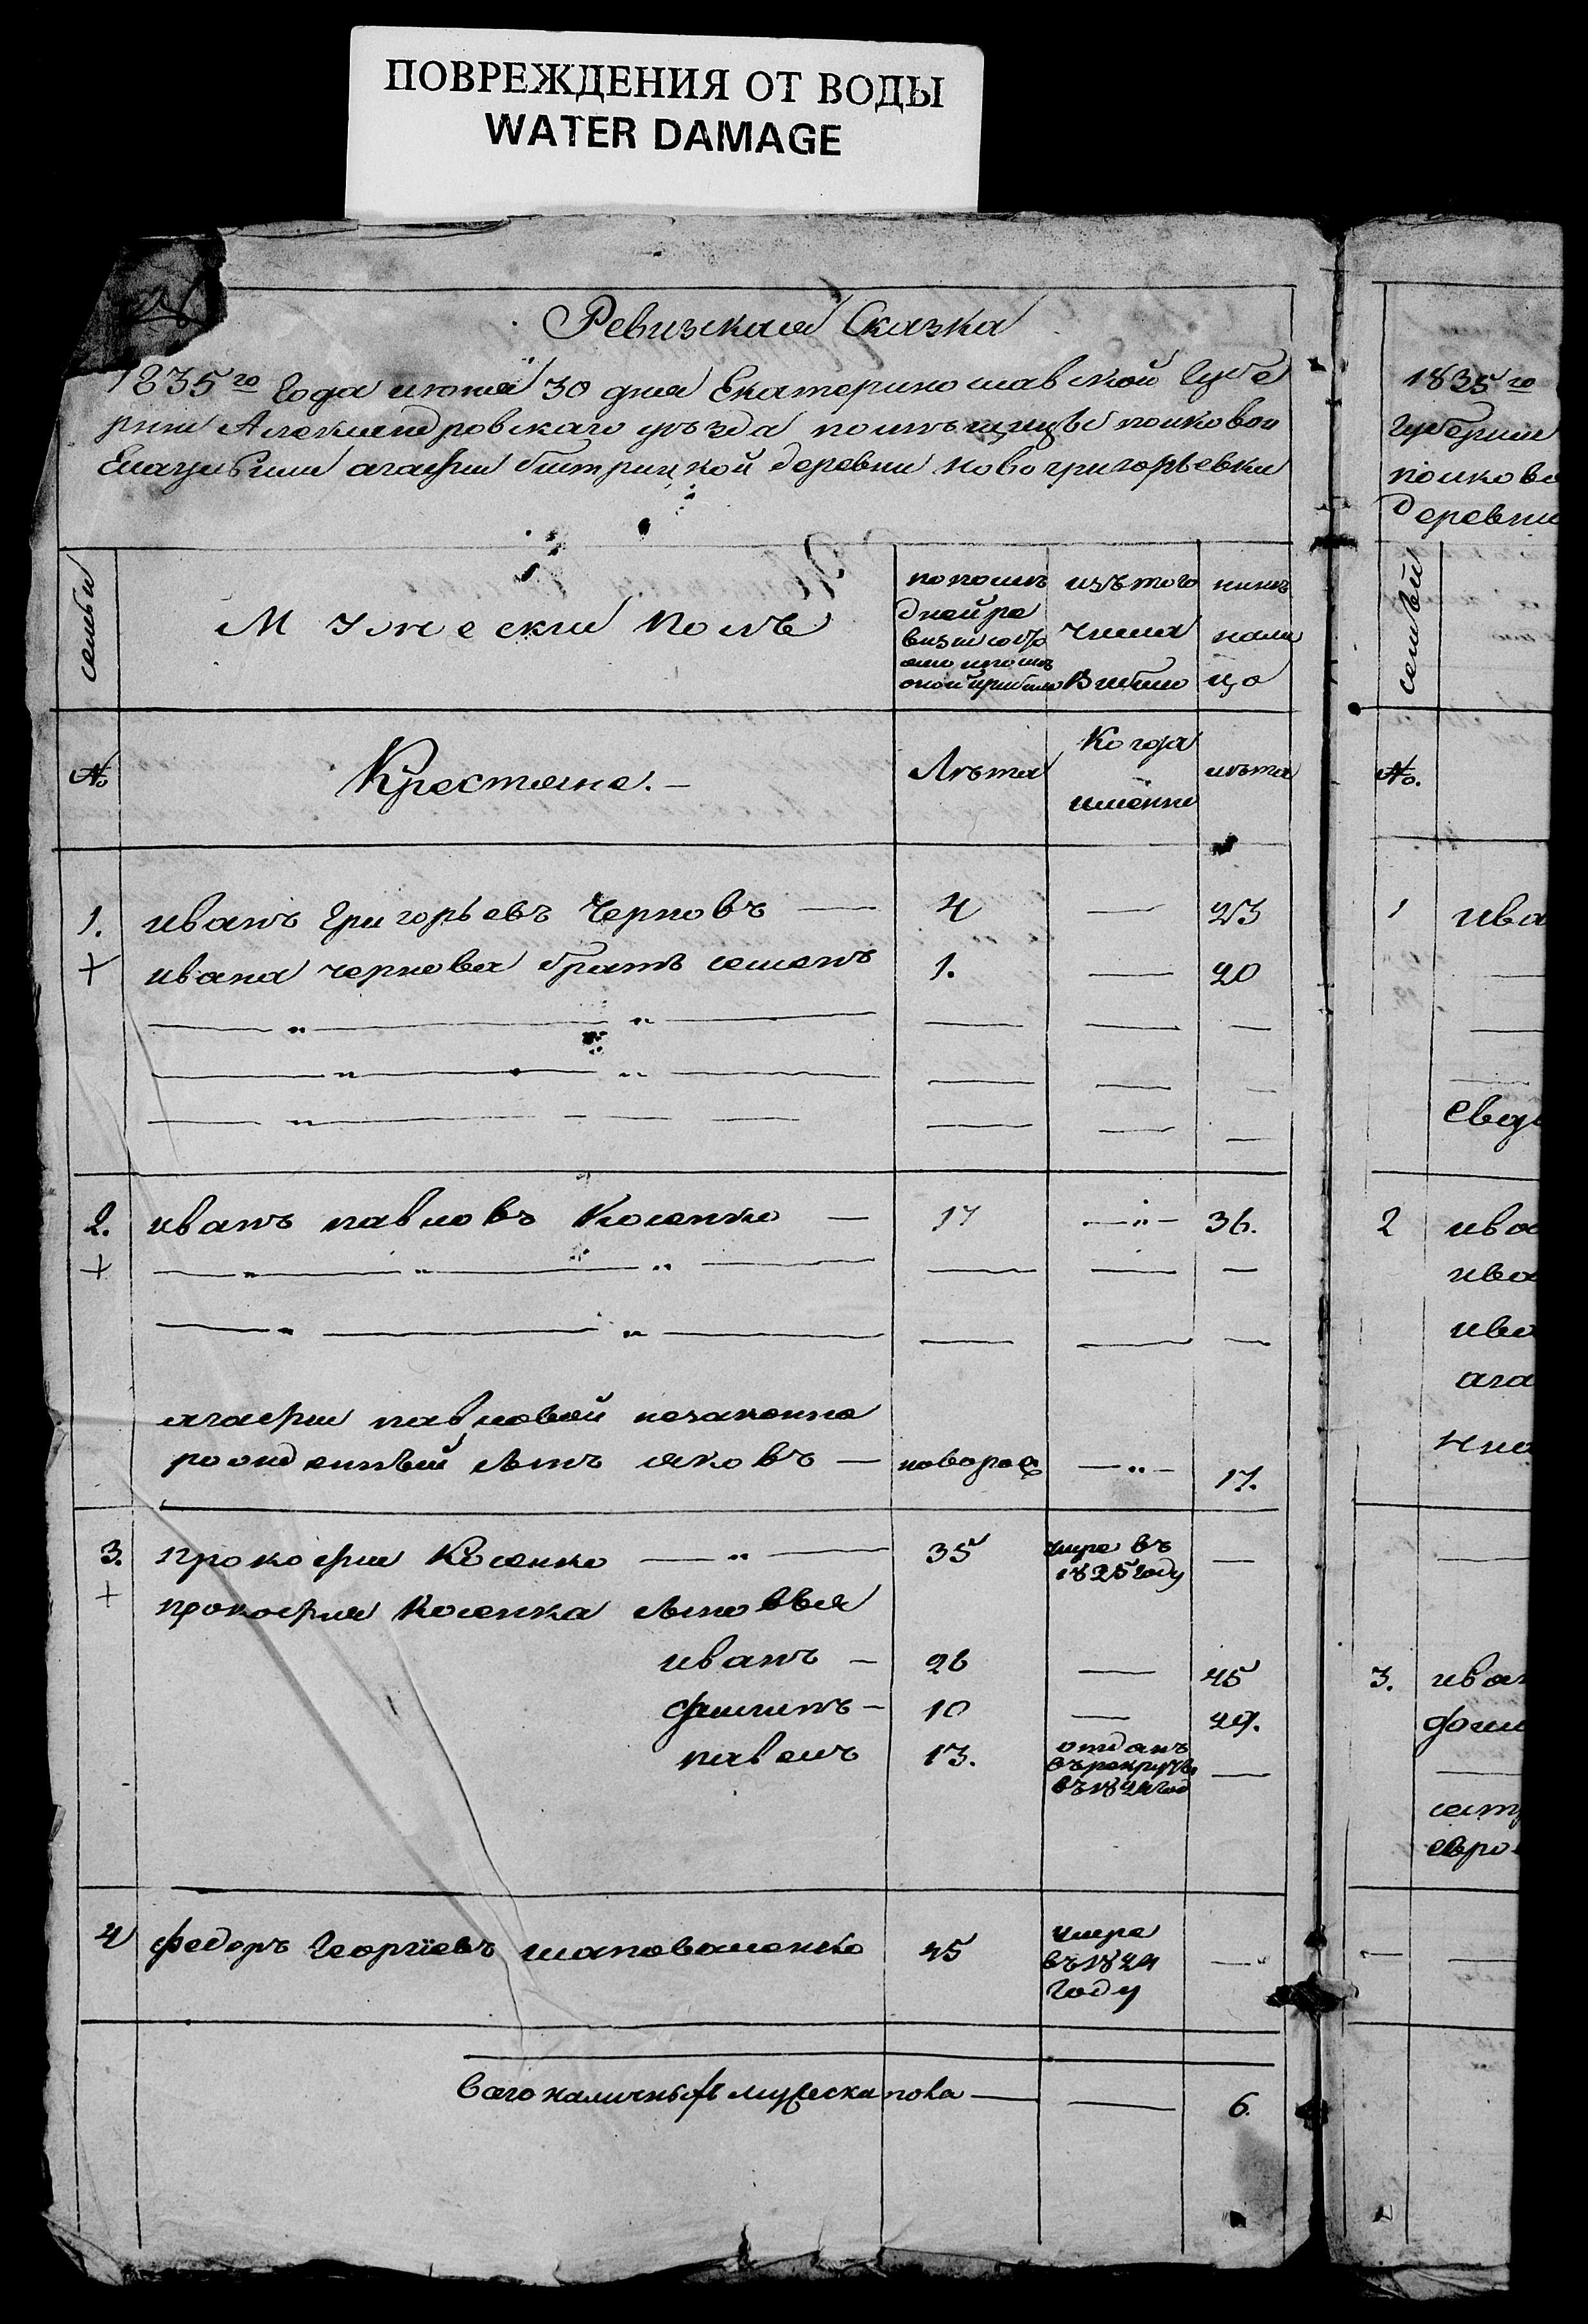 ПОВРЕЖДЕНИЯ ОТ ВОДЫ
WATER DAMAGE
Ревизская Сказка
1835го Года июня 30 дня Екатеринославской Губе
рнии Александровскаго уезда помещицы полковой
Есаульши агафии быстрицкой деревни новогригорьевки
семьи
Мужескии полъ
по после
дней ре
визии
изъ того
числа
выбыло
ныне
нали
цо
№
Крестяне.
Лета
Когда
имянно
лета
1. иванъ Григорьевъ Черновъ — 4 — 23
+ ивана чернова братъ семенъ 1. — 20
2. иванъ павловъ Косенко — 17 — 36.
+
агафии павловой незаконно
рожденный сынъ яковъ — новорож — 17.
3. прокофии Косенко — 35 умре въ 1825 году —
+ прокофия Косенка сыновья
иванъ — 26 — 45
филипъ — 10 — 29.
павелъ 13. отданъ въ рекруты въ 1824 год —
4 федоръ Георгиевъ шаповаленко 45 умре въ 1824 году —
Всего наличныхъ мужеска пола — — 6.
1835го
Губернии
полково
деревни
семьи
№.
1 ива
2 ива
ива
ива
ага
3. иван
фили
сест